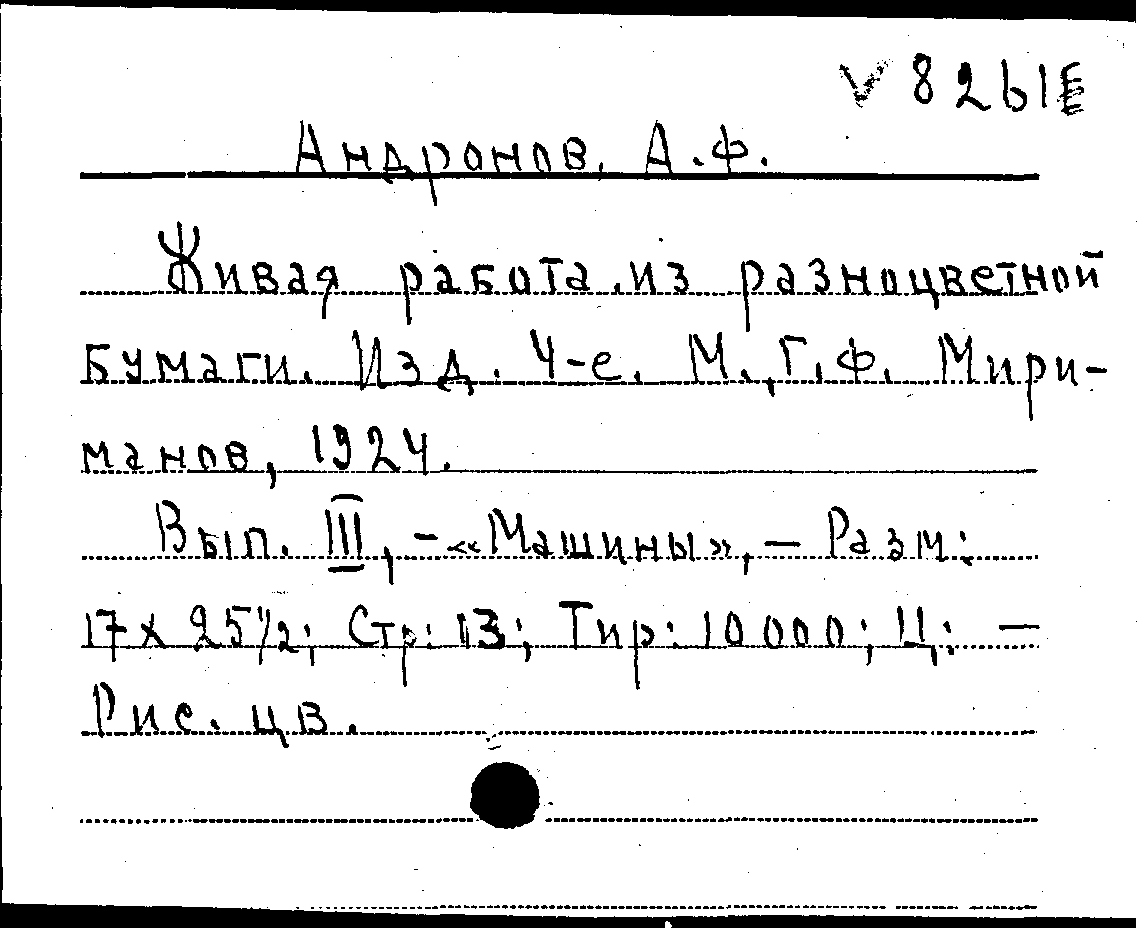 V 8261E
Андронов, А.Ф.
Живая работа из разноцветной
бумаги. Изд. 4-е. М., Г.Ф. Мири-
манов, 1924.
Вып. III, - «Машины», — Разм:
17 x 25 1/2; Стр: 13; Тир: 10000; Ц: —
Рис. цв.